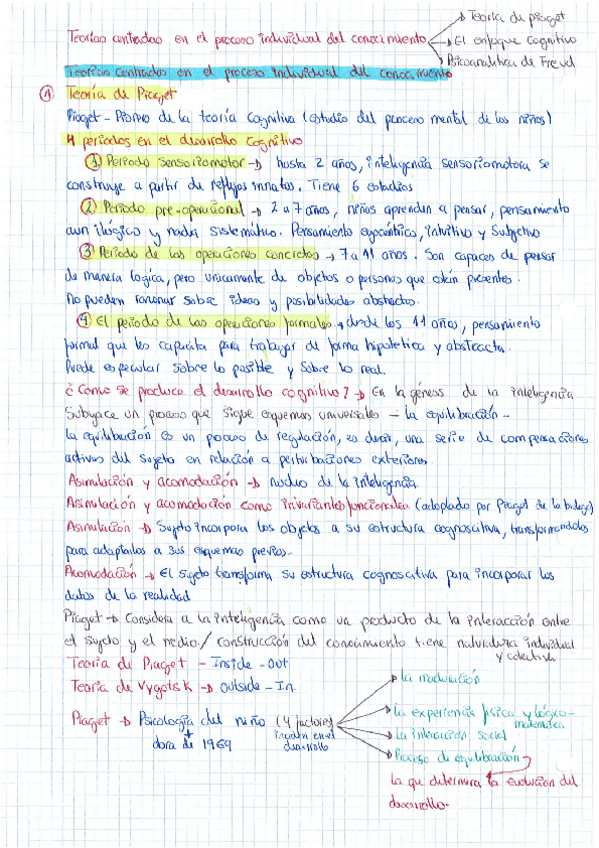 Teorías centradas en el proceso individual del conocimiento
Teoría de piaget
El enfoque Cognitivo
Psicoanalitica de Freud
Teorías Centradas en el proceso individual del conocimiento
1 Teoría de Piaget
Piaget - Pionero de la teoría Cognitiva (estudio del proceso mental de los niños)
4 periodos en el desarrollo Cognitivo
1 Periodo Sensoriomotor → hasta 2 años, inteligencia sensoriomotora se
construye a partir de reflejos innatos. Tiene 6 estadios
2 Periodo pre-operacional → 2 a 7 años, niños aprenden a pensar, pensamiento
aun ilógico y nada sistemático. Pensamiento egocéntrico, intuitivo y Subjetivo
3 Periodo de las operaciones concretas → 7 a 11 años. Son capaces de pensar
de manera logica, pero unicamente de objetos o personas que están presentes.
No pueden razonar sobre ideas y posibilidades abstractas.
4 El periodo de las operaciones formales → desde los 11 años, pensamiento
formal que les capacita para trabajar de forma hipotetica y abstracta.
Puede especular sobre lo posible y Sobre lo real.
¿Como se produce el desarrollo cognitivo? → En la génesis de la inteligencia
Subyace un proceso que sigue esquemas universales - la equilibración -
la equilibración es un proceso de regulación, es decir, una serie de compensaciones
activas del Sujeto en relación a perturbaciones exteriores.
Asimilación y acomodación → nucleo de la inteligencia.
Asimilación y acomodación como invariantes funcionales (adoptado por Piaget de la biología)
Asimilación → Sujeto incorpora los objetos a su estructura cognoscitiva, transformandolos
para adaptarlos a sus esquemas previos.
Acomodación → El sujeto transforma su estructura cognoscitiva para incorporar los
datos de la realidad
Piaget → Considera a la inteligencia como un producto de la interacción entre
el sujeto y el medio / construcción del conocimiento tiene naturaleza individual
y colectiva
Teoría de Piaget - Inside - out
Teoría de Vygotsk → outside - In.
Piaget → Psicología del niño (4 factores
inciden en el
desarrollo
dora de 1969
la maduración
la experiencia fisica y lógico-
matemática
la interacción social
Proceso de equilibración
la que determina la evolución del
desarrollo.